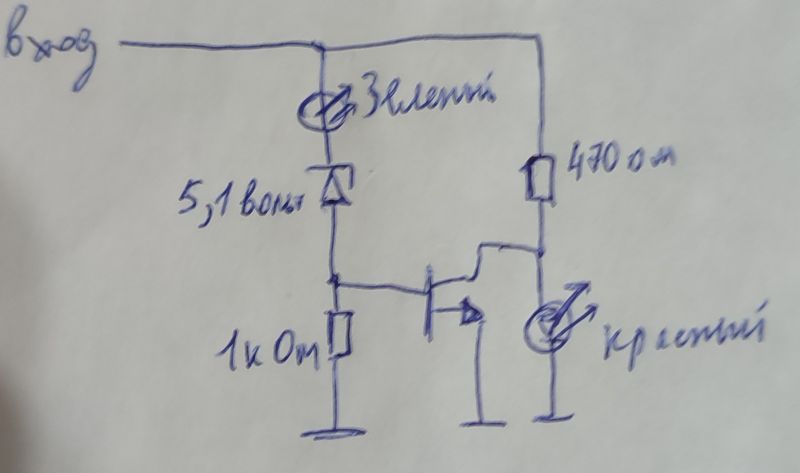 Вход
Зеленый
470 ом
5,1 вольт
1 к Ом
красный